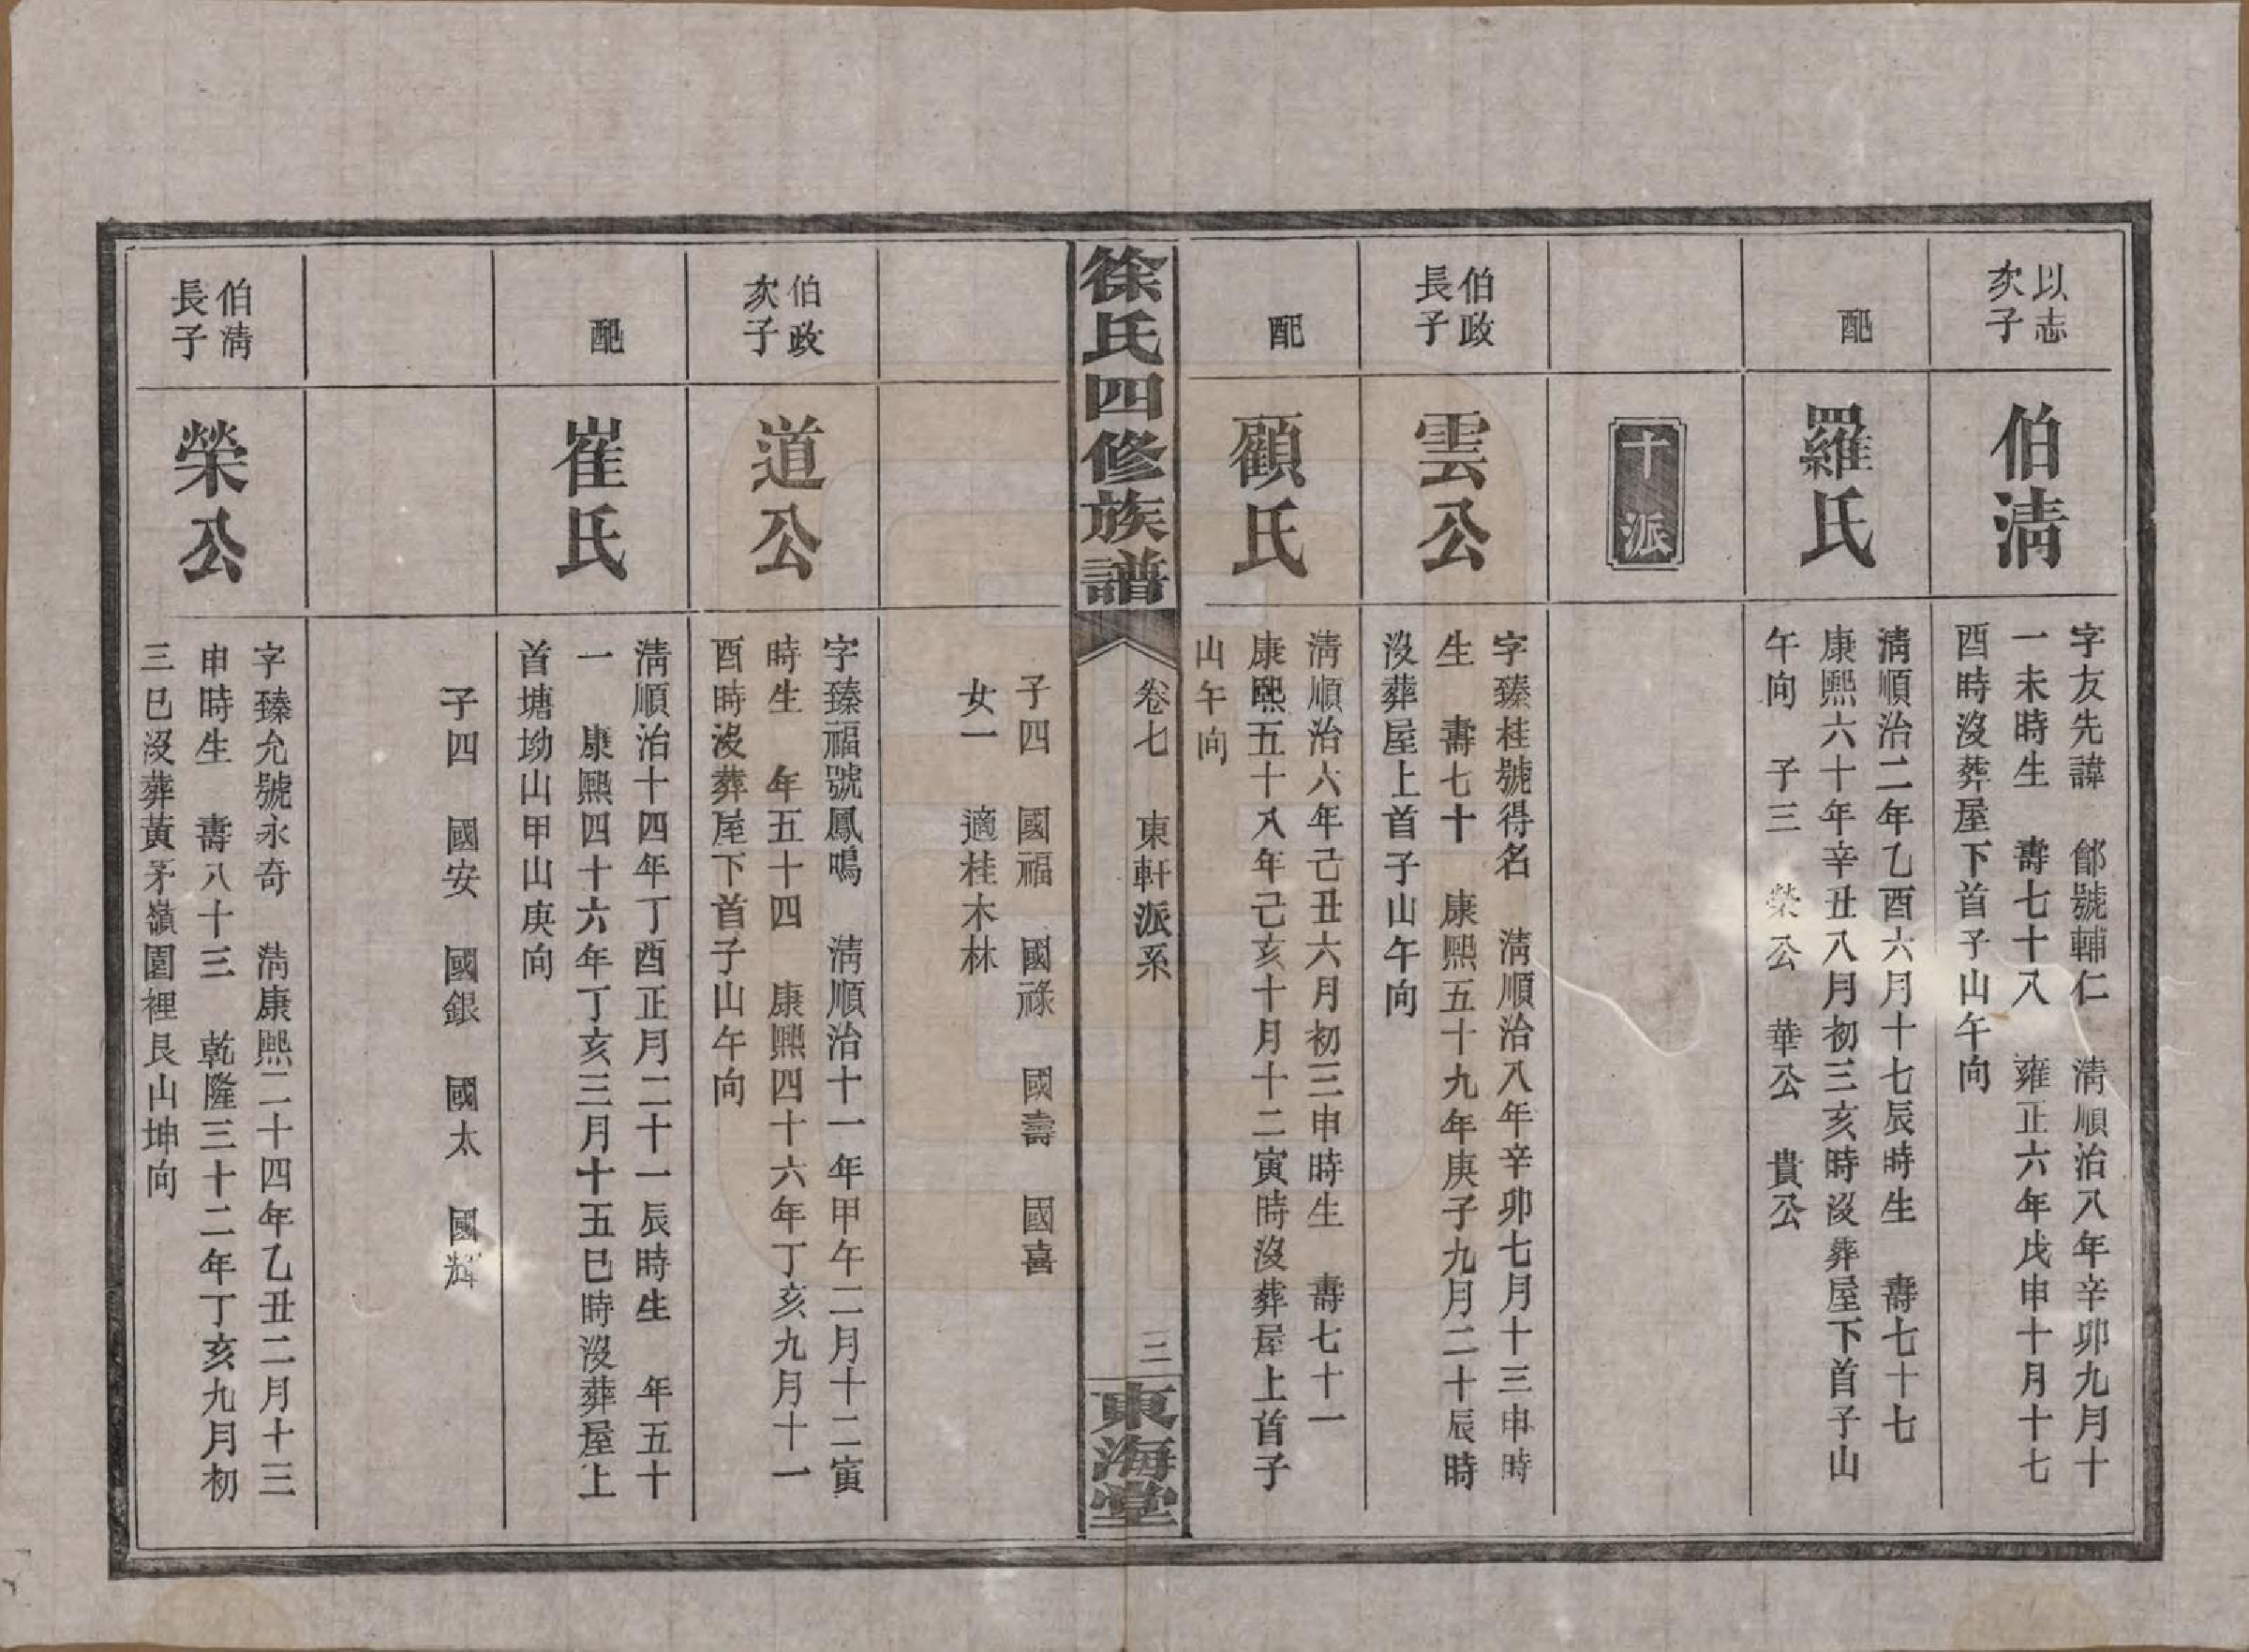 以志
次子
伯淸
字友先諱 郃號輔仁 淸順治八年辛卯九月十
一未時生 壽七十八 雍正六年戊申十月十七
酉時沒葬屋下首子山午向
配
羅氏
淸順治二年乙酉六月十七辰時生 壽七十七
康熙六十年辛丑八月初三亥時沒葬屋下首子山
午向 子三 榮公 華公 貴公
十派
伯政
長子
雲公
字臻桂號得名 淸順治八年辛卯七月十三申時
生 壽七十 康熙五十九年庚子九月二十辰時
沒葬屋上首子山午向
配
顧氏
淸順治六年己丑六月初三申時生 壽七十一
康熙五十八年己亥十月十二寅時沒葬屋上首子
山午向
徐氏四修族譜
卷七 東軒派系
三
東海堂
子四 國福 國祿 國壽 國喜
女一 適桂木林
伯政
次子
道公
字臻福號鳳鳴 淸順治十一年甲午二月十二寅
時生 年五十四 康熙四十六年丁亥九月十一
酉時沒葬屋下首子山午向
配
崔氏
淸順治十四年丁酉正月二十一辰時生 年五十
一 康熙四十六年丁亥三月十五巳時沒葬屋上
首塘坳山甲山庚向
子四 國安 國銀 國太 國輝
伯淸
長子
榮公
字臻允號永奇 淸康熙二十四年乙丑二月十三
申時生 壽八十三 乾隆三十二年丁亥九月初
三巳沒葬黃茅嶺園裡艮山坤向